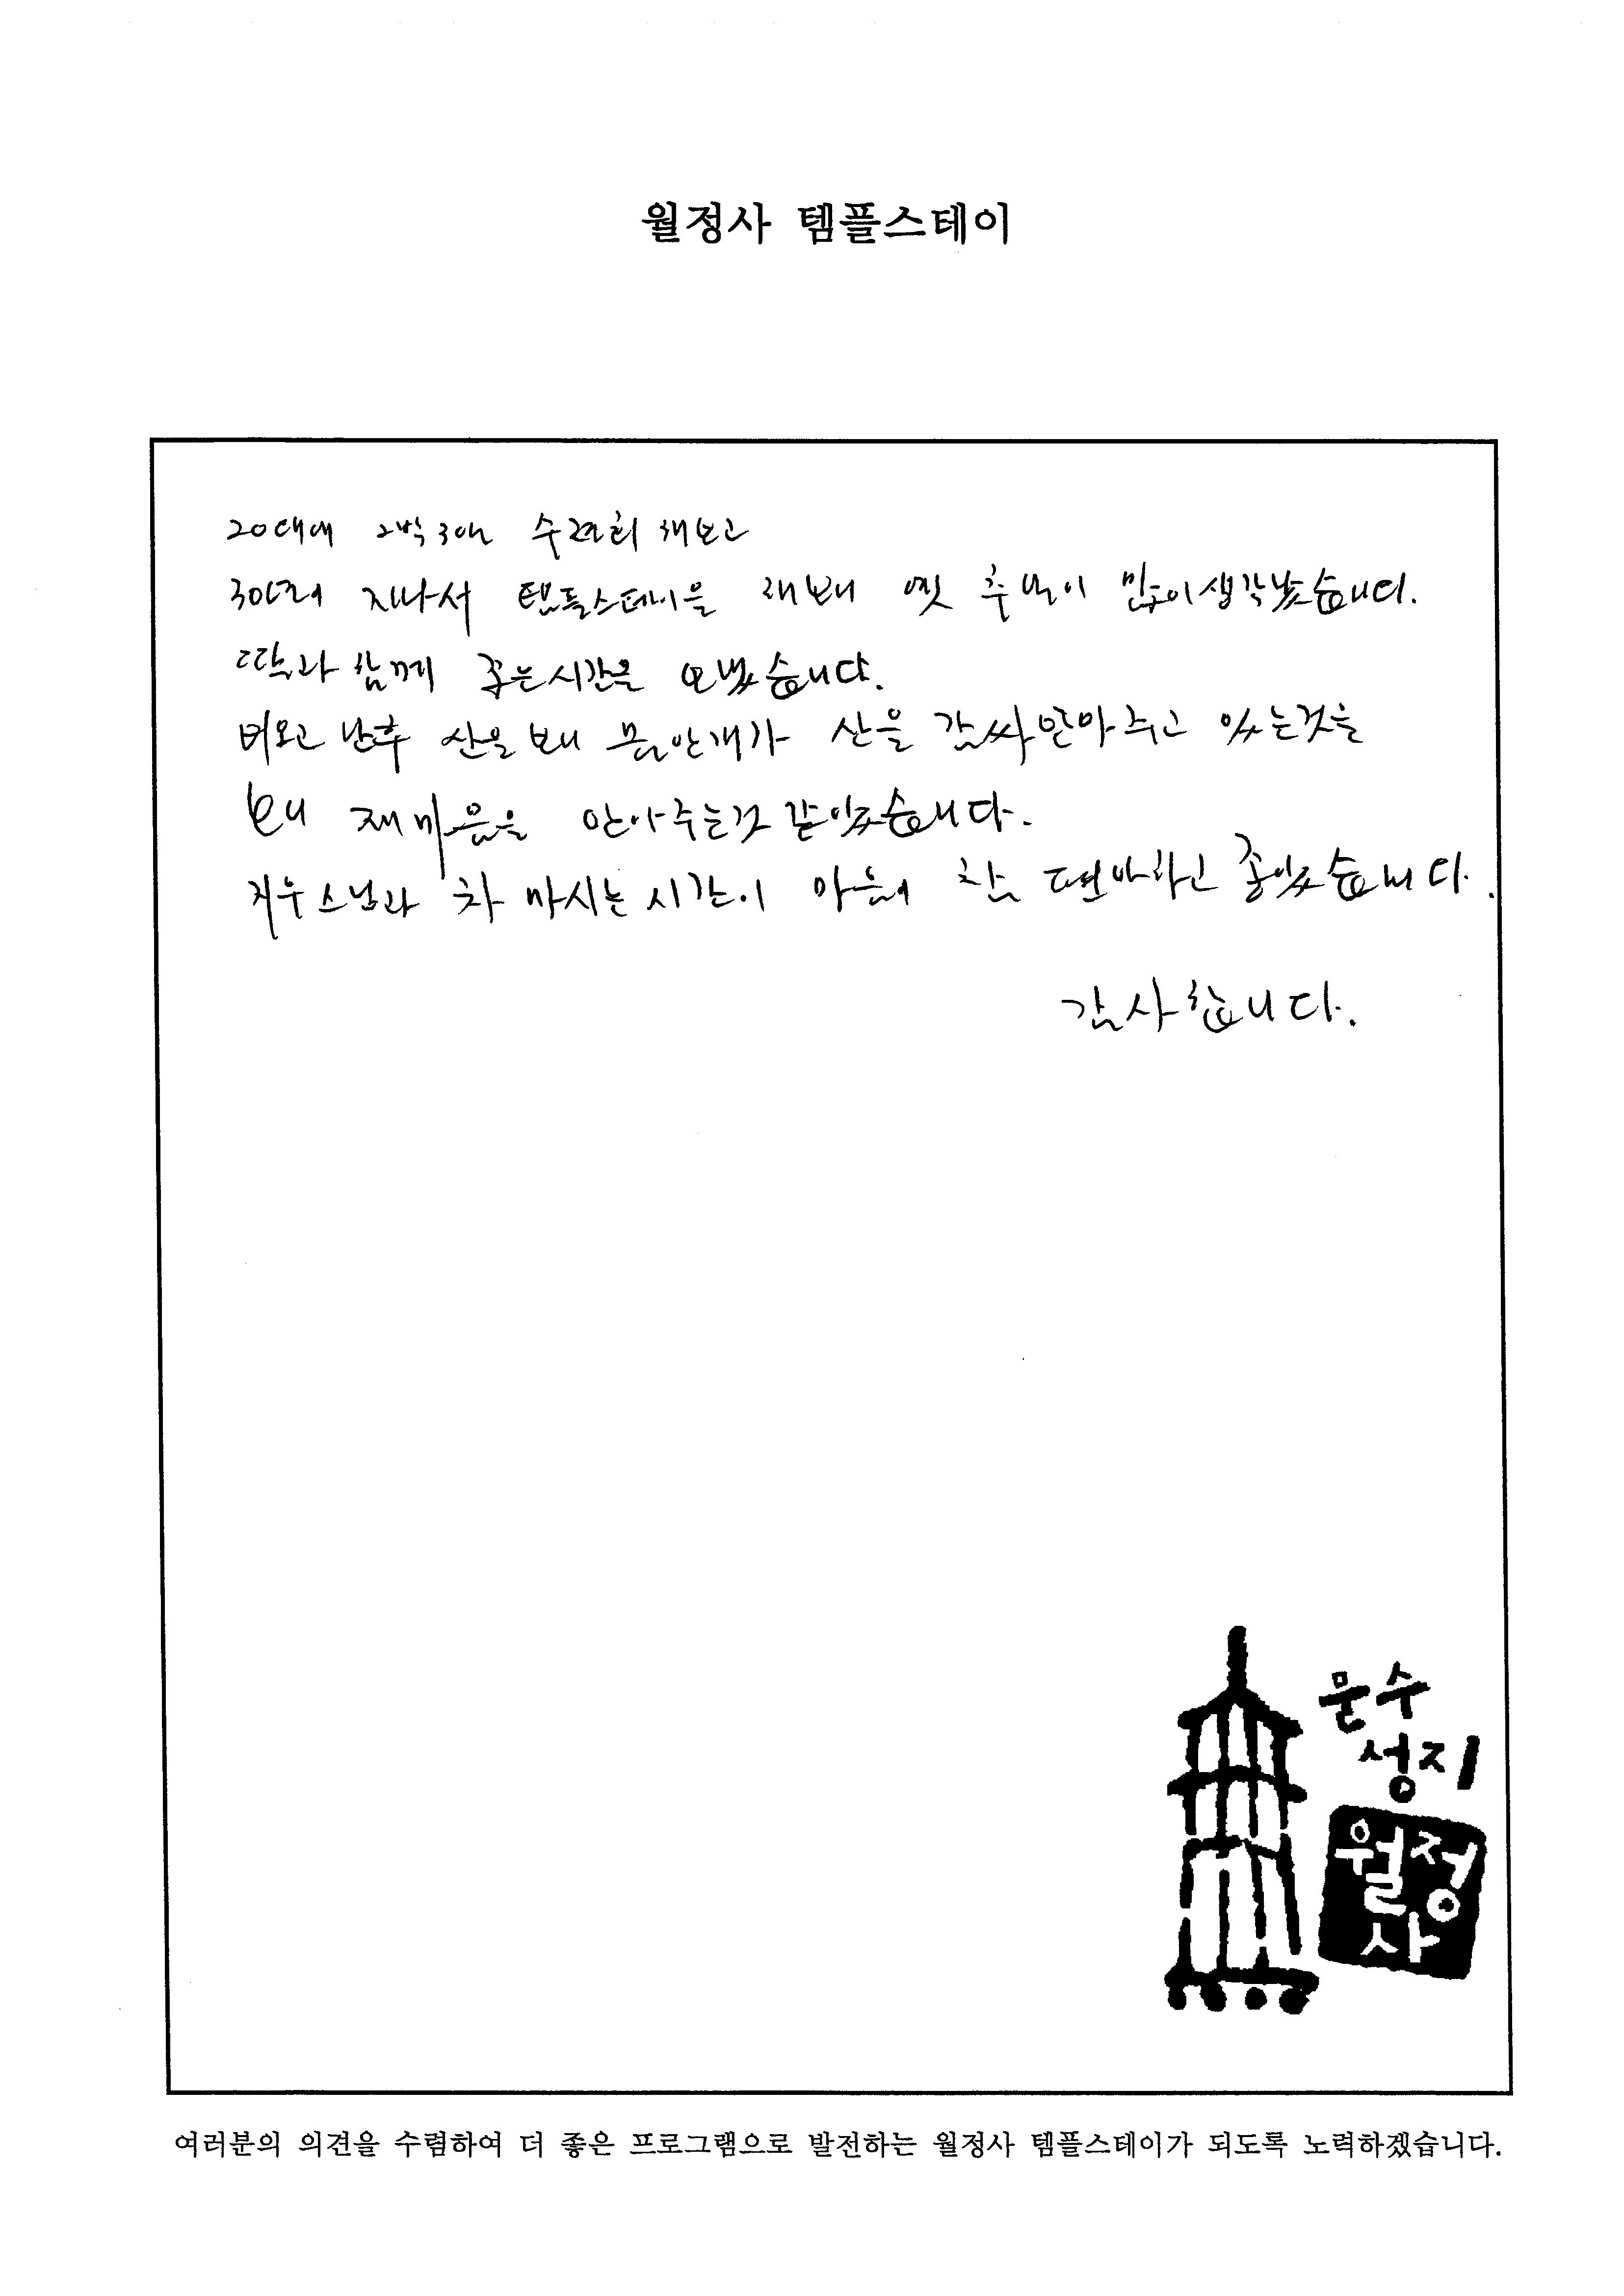 월정사 템플스테이
20대에 2박3일 수련회 해보고
30년이 지나서 템플스테이을 해보니 옛 추억이 많이 생각났습니다.
딸과 함께 좋은시간을 보냈습니다.
비오고 난후 산을 보니 물안개가 산을 감싸 안아 주고 있는것을
보니 제 마음을 안아주는것 같았습니다.
지우스님과 차 마시는 시간이 마음이 참 편안하고 좋았습니다.
감사합니다.
문수
성지
월정
사
여러분의 의견을 수렴하여 더 좋은 프로그램으로 발전하는 월정사 템플스테이가 되도록 노력하겠습니다.